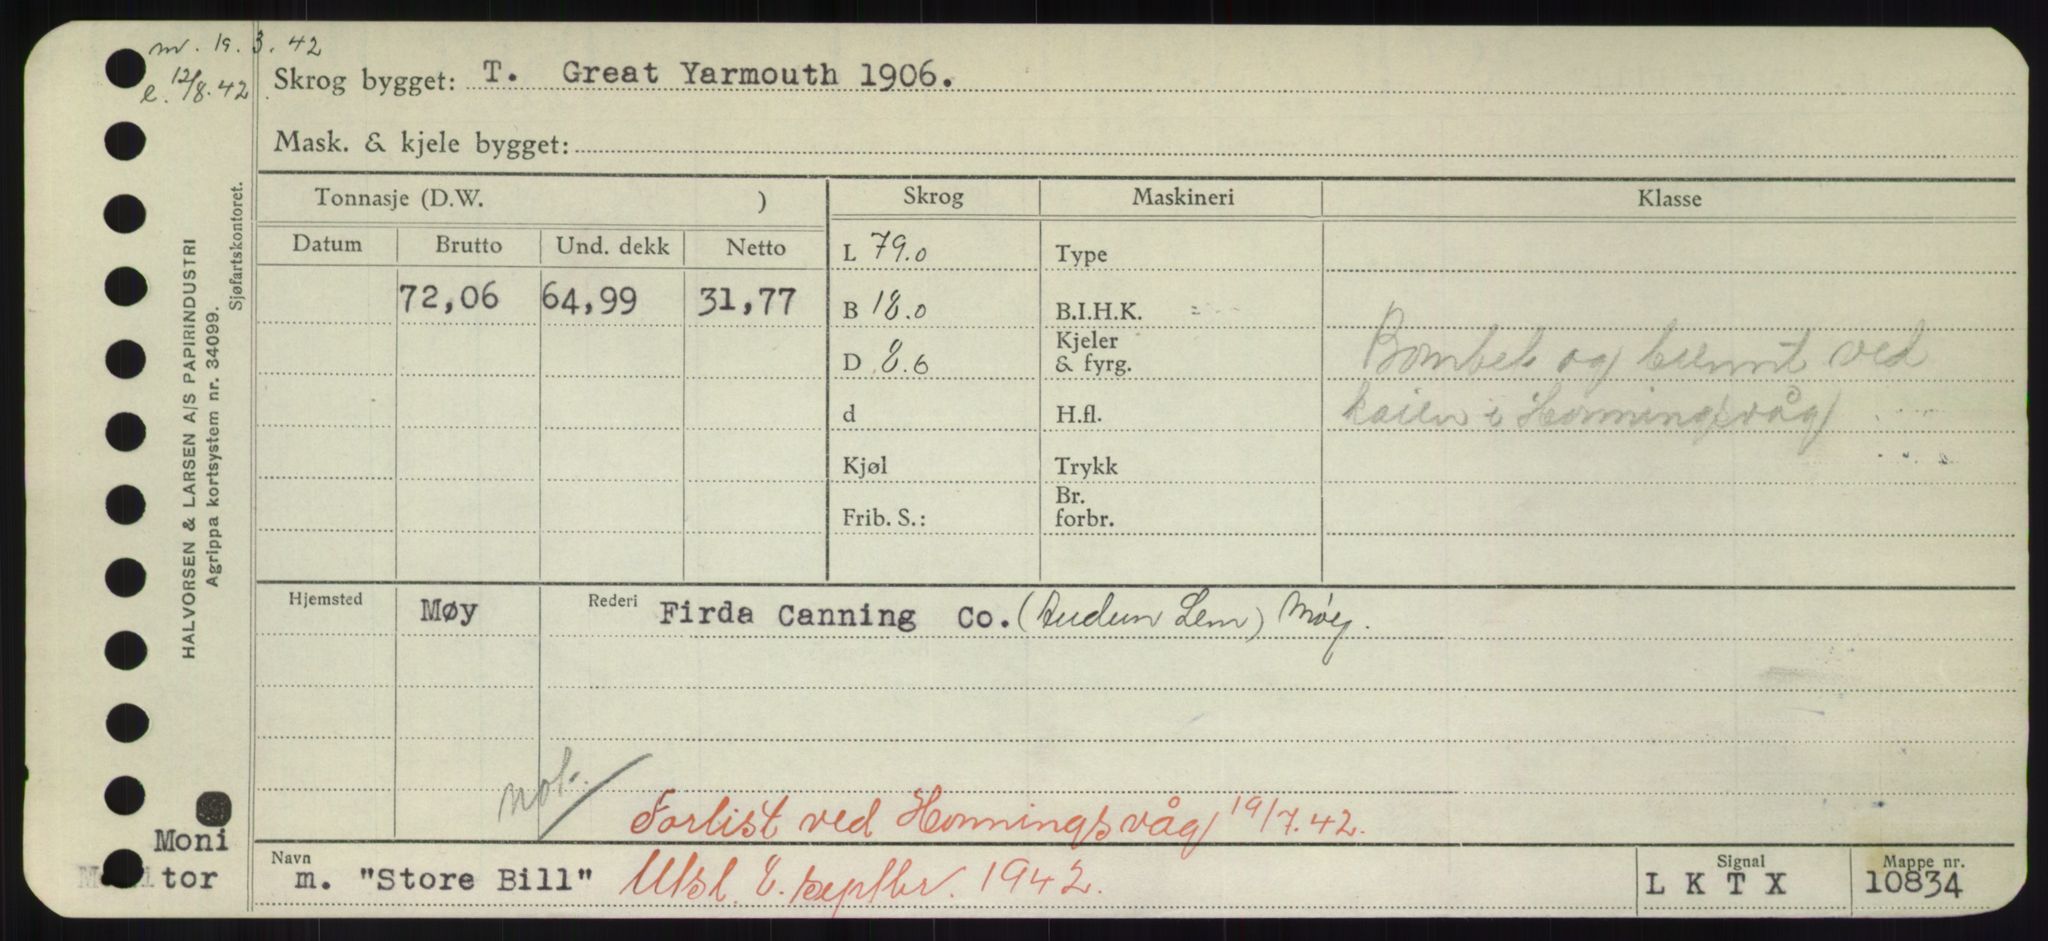 m. 19.3.42
e. 12/8.42
Skrog bygget: T. Great Yarmouth 1906.
Mask. & kjele bygget:
HALVORSEN & LARSEN A/S PAPIRINDUSTRI
Agrippa kortsystem nr. 34099.
Sjøfartskontoret.
Tonnasje (D.W. ) Skrog Maskineri Klasse
Datum Brutto Und. dekk Netto L 79.0 Type
72,06 64,99 31,77 B 18.0 B.I.H.K.
D 8.6 Kjeler & fyrg.
d H.fl.
Kjøl Trykk
Frib. S.: Br. forbr.
Bombet og brennt ved
kaien i Honningsvåg
Hjemsted Møy Rederi Firda Canning Co. (Audun Lem) Møy.
not.
Forlist ved Honningsvåg 19/7.42.
Moni
tor
Navn m. "Store Bill" Utsl. 8. septbr. 1942.
Signal LKTX
Mappe nr. 10834